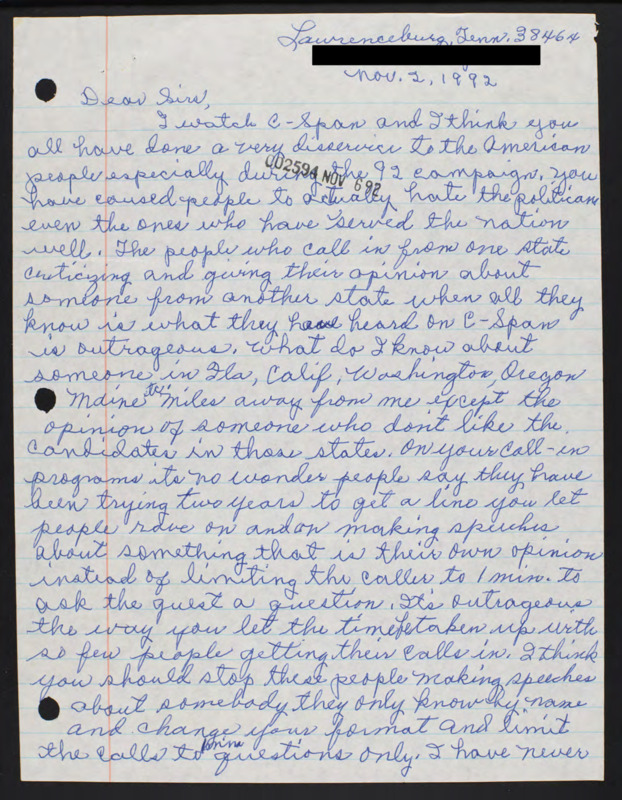 Lawrenceburg, Tenn. 38464
Nov. 2, 1992
Dear Sirs,
I watch C-Span and I think you
all have done a very disservice to the American
people especially during the 92 campaign. You
002594 NOV 6 92
have caused people to actually hate the politicians
even the ones who have served the nation
well. The people who call in from one state
criticizing and giving their opinion about
someone from another state when all they
know is what they have heard on C-Span
is outrageous. What do I know about
someone in Fla, Calif, Washington, Oregon
Maine etc. miles away from me except the
opinion of someone who don't like the
candidates in those states. On your call-in
programs its no wonder people say they have
been trying two years to get a line you let
people rave on and on making speeches
about something that is their own opinion
instead of limiting the caller to 1 min. to
ask the guest a question. It's outrageous
the way you let the time be taken up with
so few people getting their calls in. I think
you should stop these people making speeches
about somebody they only know by name
and change your format and limit
the calls to questions only. I have never